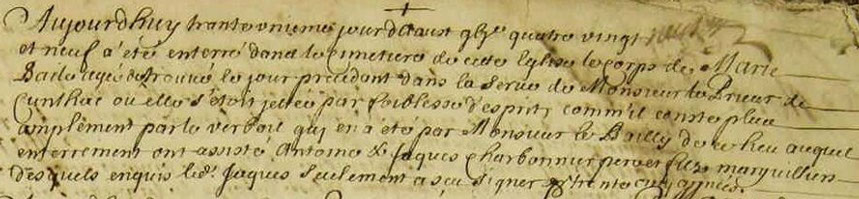 Aujourdhuy trante unieme jour d'aoust quatre vingt
et neuf a été enterré dans le cimetiere de cete Eglise le corps de Marie
Baile agée trouvé le jour precedant dans la Serve de Monsieur le Prieur de
Cunlhac où elle s'étoit jettée par foiblesse d'esprit, comm'il conste plus
amplement par le verbail qui en a été par Monsieur le Bailly de ce lieu auquel
enterrement ont assisté Antoine & Jaques Charbonnier pere et fils marguilliers
desquels enquis led. Jaques seulement a sçu signer